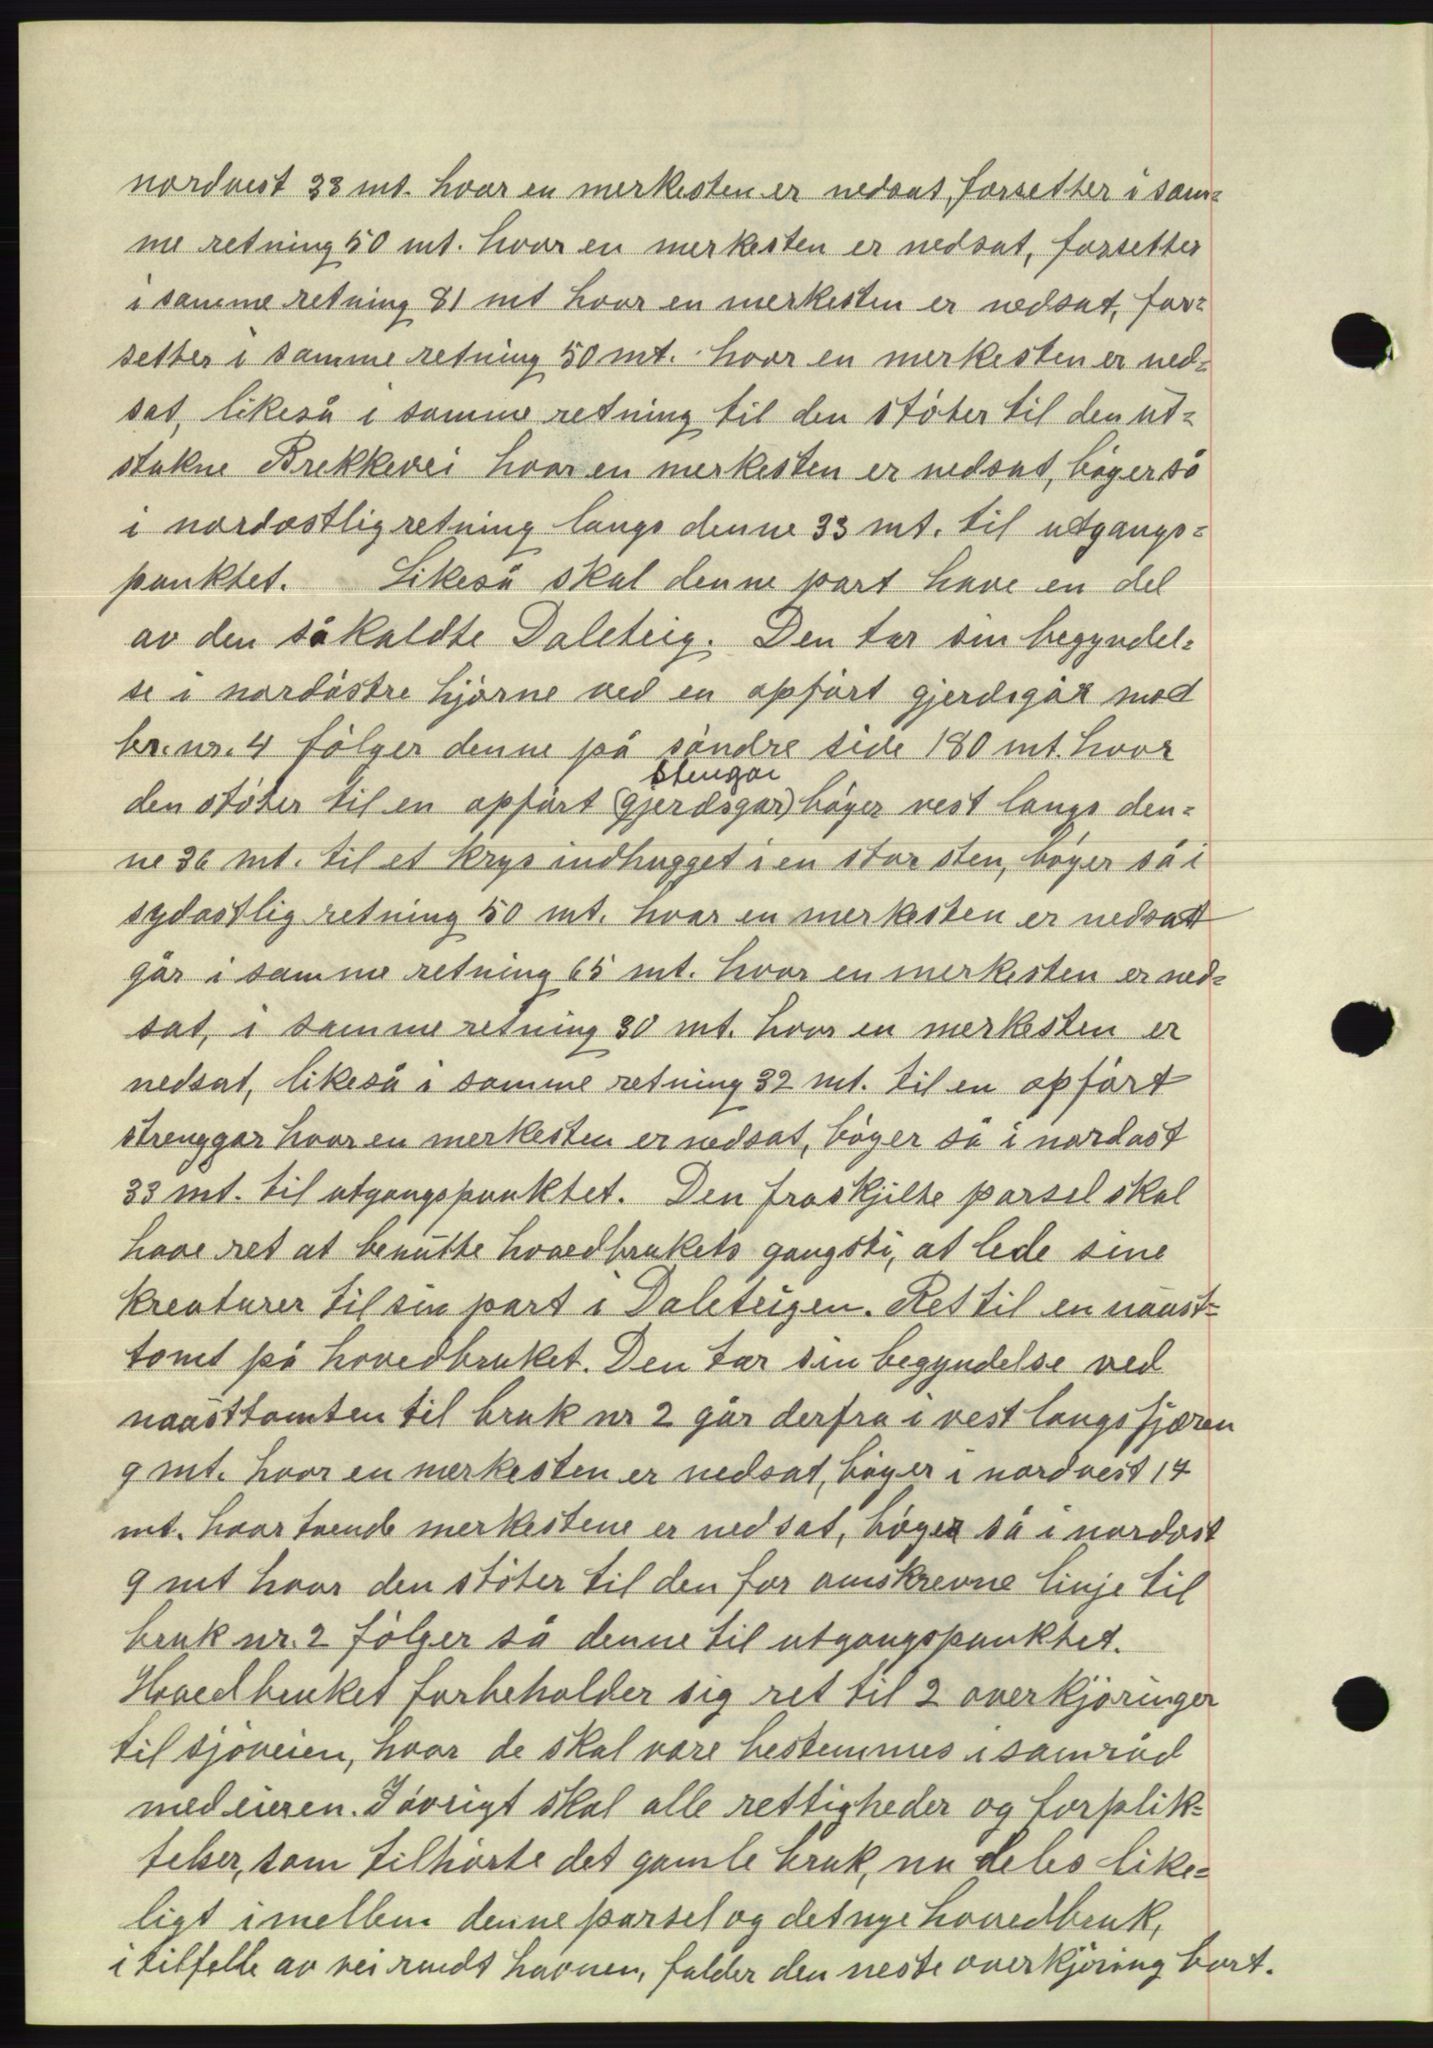 nordvest 33 mt. hvor en merkesten er nedsat, forsetter i sam=
me retning 50 mt. hvor en merkesten er nedsat, forsetter
i samme retning 81 mt hvor en merkesten er nedsat, for=
setter i samme retning 50 mt. hvor en merkesten er ned=
sat, likeså i samme retning til den stöter til den ut=
stukne Brekkevei hvor en merkesten er nedsat, böyer så
i nordostlig retning langs denne 33 mt. til utgangs=
punktet. Likeså skal denne part have en del
av den såkaldte Daleteig. Den tar sin begyndel=
se i nordöstre hjörne ved en opfört gjerdsgår mod
br. nr. 4 fölger denne på söndre side 180 mt. hvor
stengar
den stöter til en opfört (gjerdsgar) böyer vest langs den=
ne 36 mt. til et krys indhugget i en stor sten, böyer så i
sydostlig retning 50 mt. hvor en merkesten er nedsatt
går i samme retning 65 mt. hvor en merkesten er ned=
sat, i samme retning 30 mt. hvor en merkesten er
nedsat, likeså i samme retning 32 mt. til en opfört
strenggar hvor en merkesten er nedsat, böyer så i nordost
33 mt. til utgangspunktet. Den fraskjilte parsel skal
have ret at benütte hovedbrukets gangsti, at lede sine
kreaturer til sin part i Daleteigen. Ret til en naust=
tomt på hovedbruket. Den tar sin begyndelse ved
nausttomten til bruk nr 2 går derfra i vest langs fjæren
9 mt. hvor en merkesten er nedsat, böyer i nordvest 17
mt. hvor tvende merkestene er nedsat, böyer så i nordost
9 mt hvor den stöter til den for omskrevne linje til
bruk nr. 2 fölger så denne til utgangspunktet.
Hovedbruket forbeholder sig ret til 2 overkjöringer
til sjöveien, hvor de skal være bestemmes i samråd
med eieren. I övrigt skal alle rettigheder og forplik=
telser, som tilhörte det gamle bruk, nu deles like=
ligt imellem denne parsel og det nye hovedbruk,
i tilfelle av vei rundt havnen, falder den neste overkjöring bort.